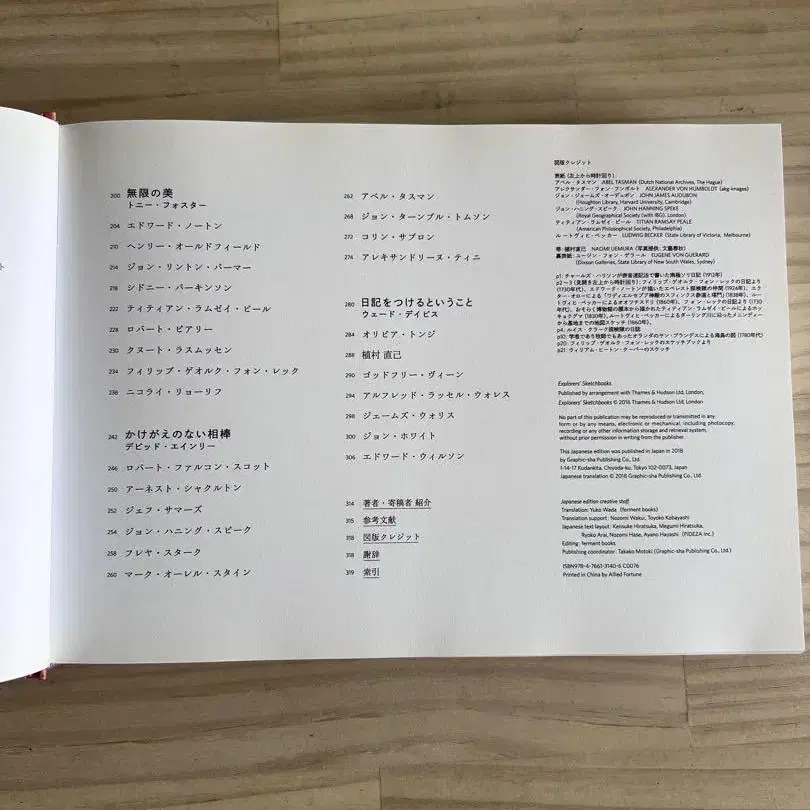 ト
200 無限の美
トニー・フォスター
204 エドワード・ノートン
210 ヘンリー・オールドフィールド
214 ジョン・リントン・パーマー
218 シドニー・パーキンソン
222 ティティアン・ラムゼイ・ピール
228 ロバート・ピアリー
230 クヌート・ラスムッセン
234 フィリップ・ゲオルク・フォン・レック
238 ニコライ・リョーリフ
242 かけがえのない相棒
デビッド・エインリー
246 ロバート・ファルコン・スコット
250 アーネスト・シャクルトン
252 ジェフ・サマーズ
254 ジョン・ハニング・スピーク
258 フレヤ・スターク
260 マーク・オーレル・スタイン
262 アベル・タスマン
268 ジョン・ターンブル・トムソン
272 コリン・サブロン
274 アレキサンドリーヌ・ティニ
280 日記をつけるということ
ウェード・デイビス
284 オリビア・トンジ
288 植村 直己
290 ゴッドフリー・ヴィーン
294 アルフレッド・ラッセル・ウォレス
298 ジェームズ・ウォリス
300 ジョン・ホワイト
306 エドワード・ウィルソン
314 著者・寄稿者 紹介
315 参考文献
318 図版クレジット
318 謝辞
319 索引
図版クレジット
表紙 (左上から時計回り)
アベル・タスマン ABEL TASMAN (Dutch National Archives, The Hague)
アレクサンダー・フォン・フンボルト ALEXANDER VON HUMBOLDT (akg-images)
ジョン・ジェームズ・オーデュボン JOHN JAMES AUDUBON
(Houghton Library, Harvard University, Cambridge)
ジョン・ハニング・スピーク JOHN HANNING SPEKE
(Royal Geographical Society (with IBG), London)
ティティアン・ラムゼイ・ピール TITIAN RAMSAY PEALE
(American Philosophical Society, Philadelphia)
ルートヴィヒ・ベッカー LUDWIG BECKER (State Library of Victoria, Melbourne)
帯: 植村直己 NAOMI UEMURA (写真提供: 文藝春秋)
裏表紙: ユージン・フォン・ゲラール EUGENE VON GUERARD
(Dixson Galleries, State Library of New South Wales, Sydney)
p1: チャールズ・ハリソンが表音速記法で書いた南極ソリ日記 (1912年)
p2〜3 (見開き左上から時計回り): フィリップ・ゲオルク・フォン・レックの日記より
(1730年代)、エドワード・ノートンが描いたエベレスト探検隊の仲間 (1924年)、エク
ター・オローによる「ワディエルセブア神殿のスフィンクス参道と塔門」(1838年)、ルー
トヴィヒ・ベッカーによるオオウチスドリ (1860年)、フォン・レックの日記より (1730
年代)、おそらく博物館の標本から描かれたティティアン・ラムゼイ・ピールによるホッ
キョクグマ (1830年)、ルートヴィヒ・ベッカーによるダーリング川に沿ったメニンディー
から基地までの地図スケッチ (1860年)、
p4. ルイス・クラーク探検隊の日誌
p10: 学者であり牧師でもあったオランダのヤン・ブランデスによる海鳥の図 (1780年代)
p20 フィリップ・ゲオルク・フォン・レックのスケッチブックより
p21: ウィリアム・ビートン・クーパーのスケッチ
Explorers' Sketchbooks
Published by arrangement with Thames & Hudson Ltd, London,
Explorers' Sketchbooks © 2016 Thames & Hudson Ltd, London
No part of this publication may be reproduced or transmitted in any
form or by any means, electronic or mechanical, including photocopy,
recording or any other information storage and retrieval system,
without prior permission in writing from the publisher.
This Japanese edition was published in Japan in 2018
by Graphic-sha Publishing Co., Ltd.
1-14-17 Kudankita, Chiyoda-ku, Tokyo 102-0073, Japan
Japanese translation © 2018 Graphic-sha Publishing Co., Ltd.
Japanese edition creative staff
Translation: Yuko Wada (ferment books)
Translation support: Nozomi Wakui, Toyoko Kobayashi
Japanese text layout: Kensuke Hiratsuka, Megumi Hiratsuka,
Ryoko Arai, Nozomi Hase, Ayano Hayashi (PIDEZA Inc.)
Editing: ferment books
Publishing coordinator: Takako Motoki (Graphic-sha Publishing Co., Ltd.)
ISBN978-4-7661-3140-6 C0076
Printed in China by Allied Fortune